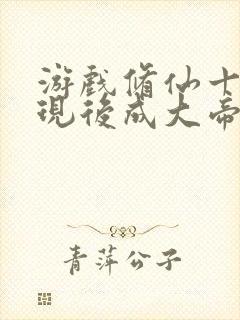 游戲脩仙十
現後成大帝
青萍公子